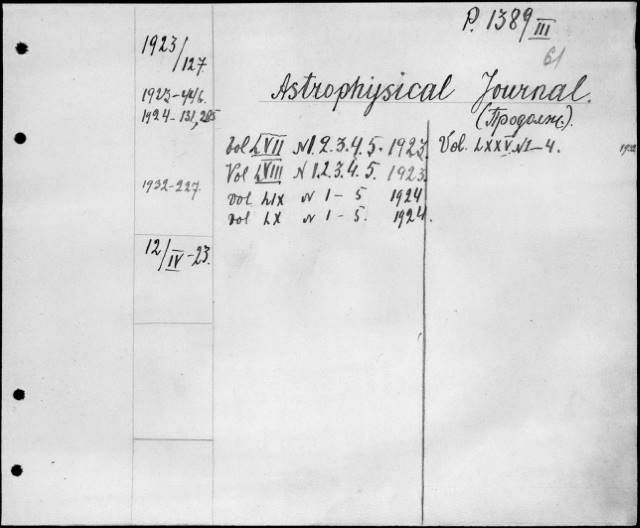 P. 1389/III
61
1923/127.
1923-446.
1924-131,285
1932-227.
12/IV-23.
Astrophysical Journal.
(Продолж.).
Vol LVII N1.2.3.4.5. 1923.
Vol LVIII N1.2.3.4.5. 1923.
vol LIX N 1-5 1924
vol LX N 1-5. 1924.
Vol. LXXV. N1-4. 1932